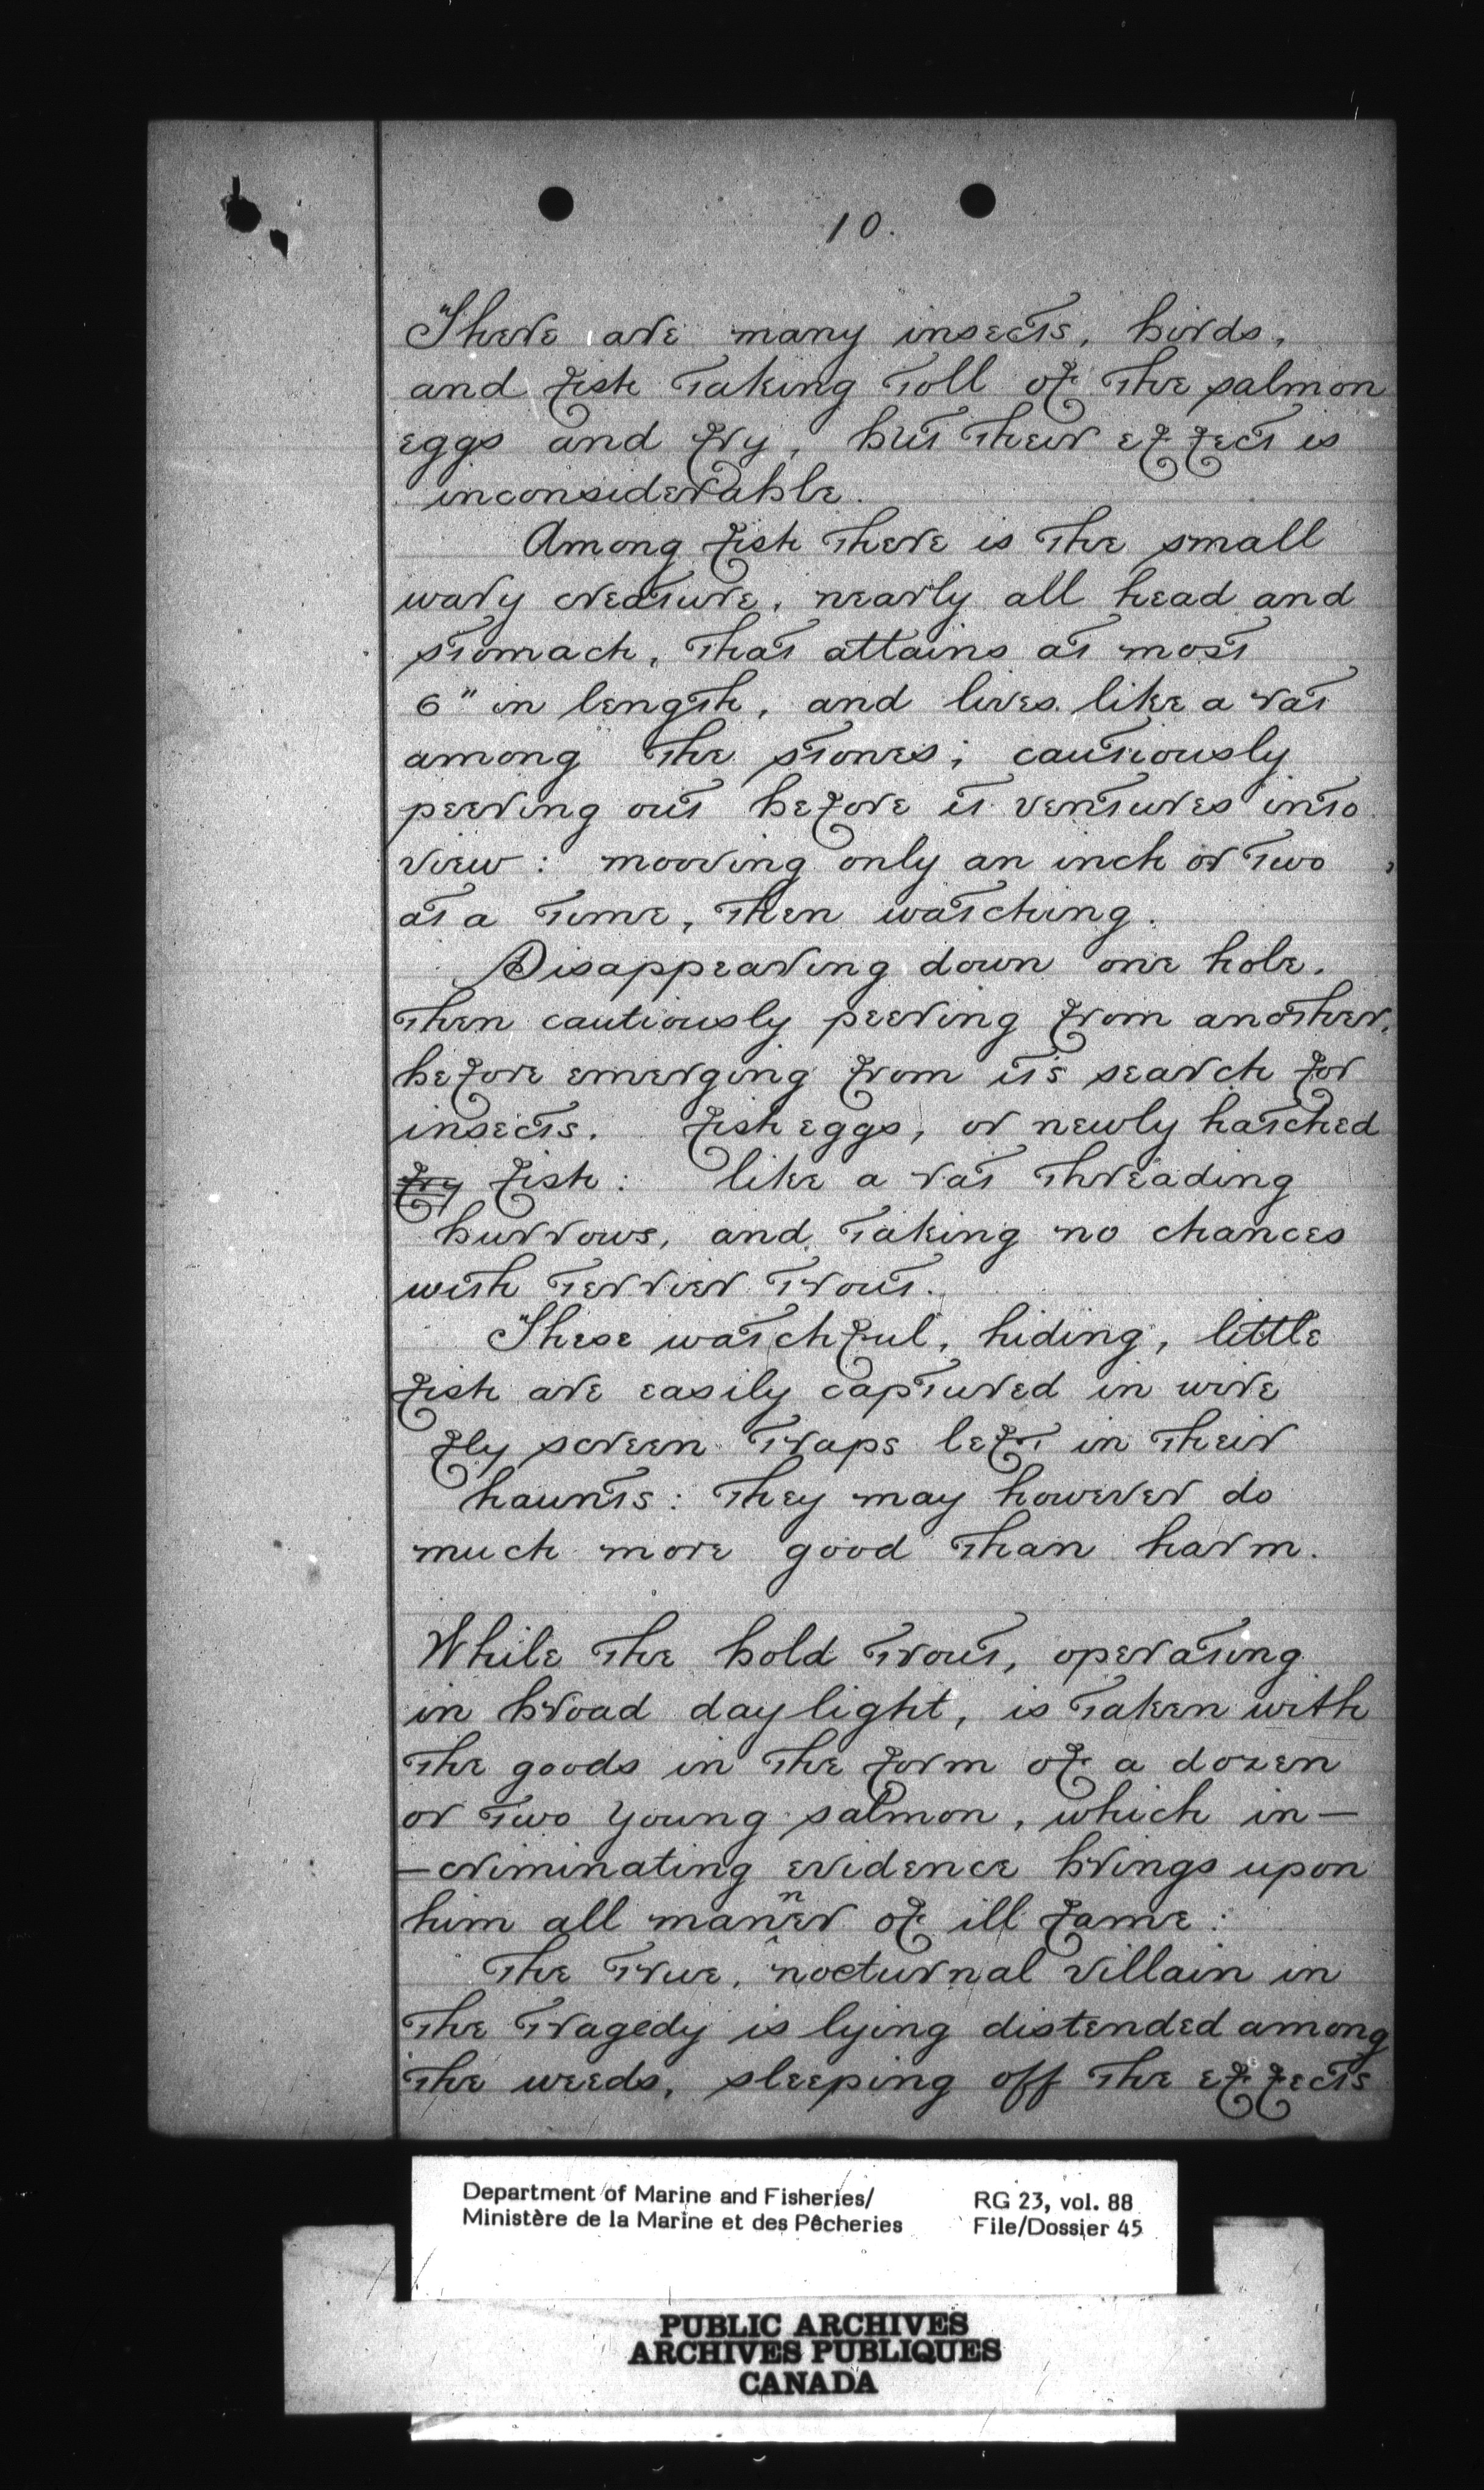 10.
There are many insects, birds,
and fish taking toll of the salmon
eggs and fry, but their effect is
inconsiderable.
Among fish there is the small
wary creature, nearly all head and
stomach, that attains at most
6" in length, and lives like a rat
among the stones; cautiously
peering out before it ventures into
view: mooving only an inch or two
at a time, then watching.
Disappearing down one hole,
then cautiously peering from another,
before emerging from it's search for
insects. fish eggs, or newly hatched
fry fish: like a rat threading
burrows, and taking no chances
with terrier trout.
These watchful, hiding, little
fish are easily captured in wire
fly screen traps left in their
haunts: they may however do
much more good than harm.
While the bold trout, operating
in broad daylight, is taken with
the goods in the form of a dozen
or two young salmon, which in-
-criminating evidence brings upon
him all manner of ill fame:
The true, nocturnal villain in
the tragedy is lying distended among
the weeds, sleeping off the effects
Department of Marine and Fisheries/
Ministère de la Marine et des Pêcheries
RG 23, vol. 88
File/Dossier 45
PUBLIC ARCHIVES
ARCHIVES PUBLIQUES
CANADA